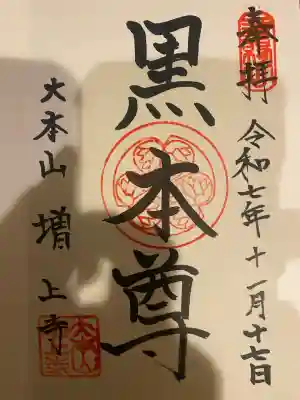 奉拝 令和七年十一月十七日
黒本尊
大本山 増上寺